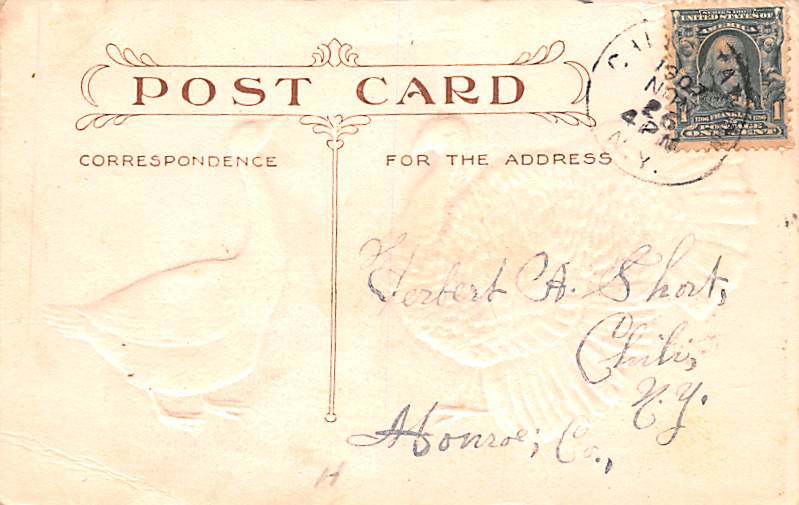 POST CARD
CORRESPONDENCE
FOR THE ADDRESS
SERIES 1902
UNITED STATES OF
AMERICA
1907
NOV
26
4 PM
N.Y.
FRANKLIN
POSTAGE
ONE CENT
Herbert A. Short,
Chili,
N.Y.
Monroe, Co.,
H